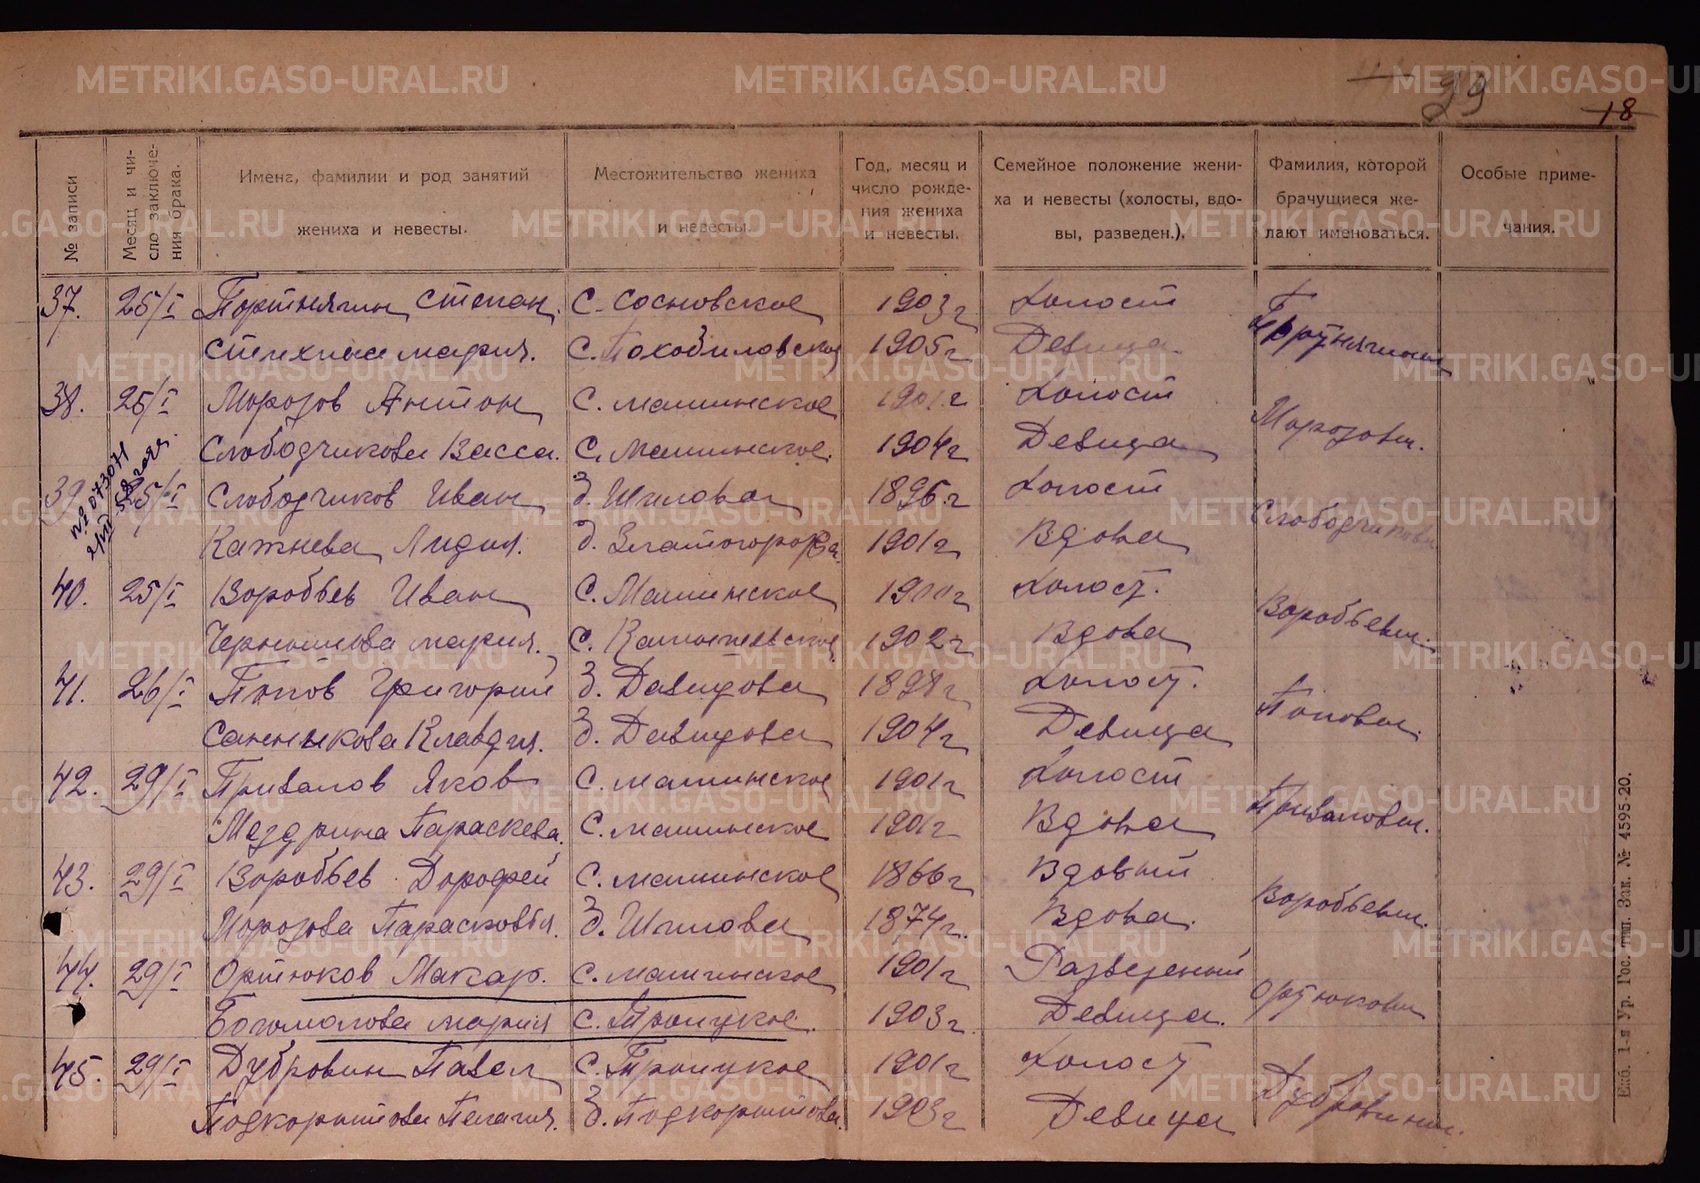 29
18
№ записи
Месяц и чи-
сло заключе-
ния брака.
Имена, фамилии и род занятий
жениха и невесты.
Местожительство жениха
и невесты.
Год, месяц и
число рожде-
ния жениха
и невесты.
Семейное положение жени-
ха и невесты (холосты, вдо-
вы, разведен.).
Фамилия, которой
брачущиеся же-
лают именоваться.
Особые приме-
чания.
37. 25/I Портнягин Степан. С. Сосновское 1903 г Холост Портнягины
Стихина Мария. С. 1905 г Девица
38. 25/I Морозов Антон С. Машинское 1901 г Холост Морозовы.
Слободчикова Васса. С. Машинское. 1904 г Девица
39 25/I Слободчиков Иван д. Шилова 1896 г Холост Слободчиковы
№ 073071
Кажнева Лидия. д. Златогорова 1901 г Вдова
40. 25/I Воробьев Иван С. Машинское 1900 г Холост. Воробьевы.
Чернышова Мария. С. 1902 г Вдова
41. 26/I Попов Григорий д. Давыдова 1898 г Холост. Поповы.
Санникова Клавдия. д. Давыдова 1904 г Девица
42. 29/I Привалов Яков С. Машинское 1901 г Холост Приваловы.
Маздрина Параскева. С. Машинское 1901 г Вдова
43. 29/I Воробьев Дорофей С. Машинское 1866 г Вдовый Воробьевы.
Морозова Парасковья. д. Шилова 1874 г. Вдова.
44. 29/I Ортюков Макар. С. Машинское 1901 г Разведеный Ортюковы
Богомолова Мария С. Троицкое. 1903 г Девица.
45. 29/I Дубровин Павел С. Троицкое 1901 г Холост Дубровины.
Подкорытова Пелагия. д. Подкорытова. 1903 г Девица
Екб. 1-я Ур. Гос. тип. Зак. № 4595-20.
METRIKI.GASO-URAL.RU